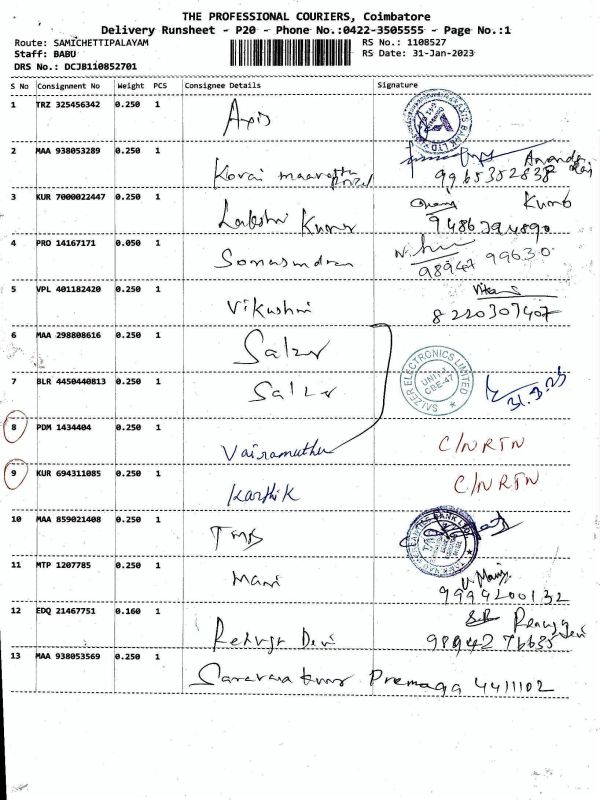 THE PROFESSIONAL COURIERS, Coimbatore
Delivery Runsheet - P20 - Phone No.:0422-3505555 - Page No.:1
Route: SAMICHETTIPALAYAM RS No.: 1108527
Staff: BABU RS Date: 31-Jan-2023
DRS No.: DCJB110852701
S No Consignment No Weight PCS Consignee Details Signature
1 TRZ 325456342 0.250 1 Axis
2 MAA 938053289 0.250 1 Kovai 9965352838
3 KUR 7000022447 0.250 1 Lakshmi Kumar Kumb
9486394890
4 PRO 14167171 0.050 1 Somasundran
98947 99630
5 VPL 401182420 0.250 1 Vikashni
8220307407
6 MAA 298808616 0.250 1 Salzer
7 BLR 4450440813 0.250 1 Salzer SALZER ELECTRONICS LIMITED UNIT-I CBE-47
8 PDM 1434404 0.250 1 Vairamuthu C/N RTN
9 KUR 694311085 0.250 1 Karthik C/N RTN
10 MAA 859021408 0.250 1 TMB
11 MTP 1207785 0.250 1 Mani Mani
9994200132
12 EDQ 21467751 0.160 1 Renuga Devi Renuga Devi
98942 76635
13 MAA 938053569 0.250 1 Saravana Kumar 4411102